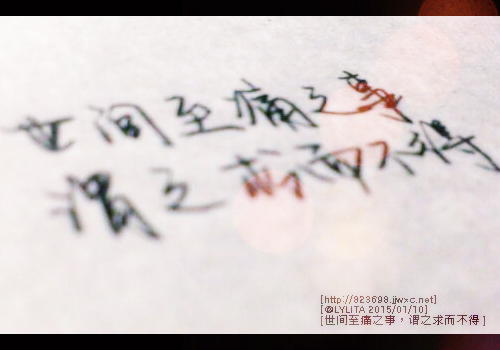 世间至痛之事
谓之求而不得
[http://823698.jjwxc.net]
[@LYLITA 2015/01/10]
[世间至痛之事，谓之求而不得]